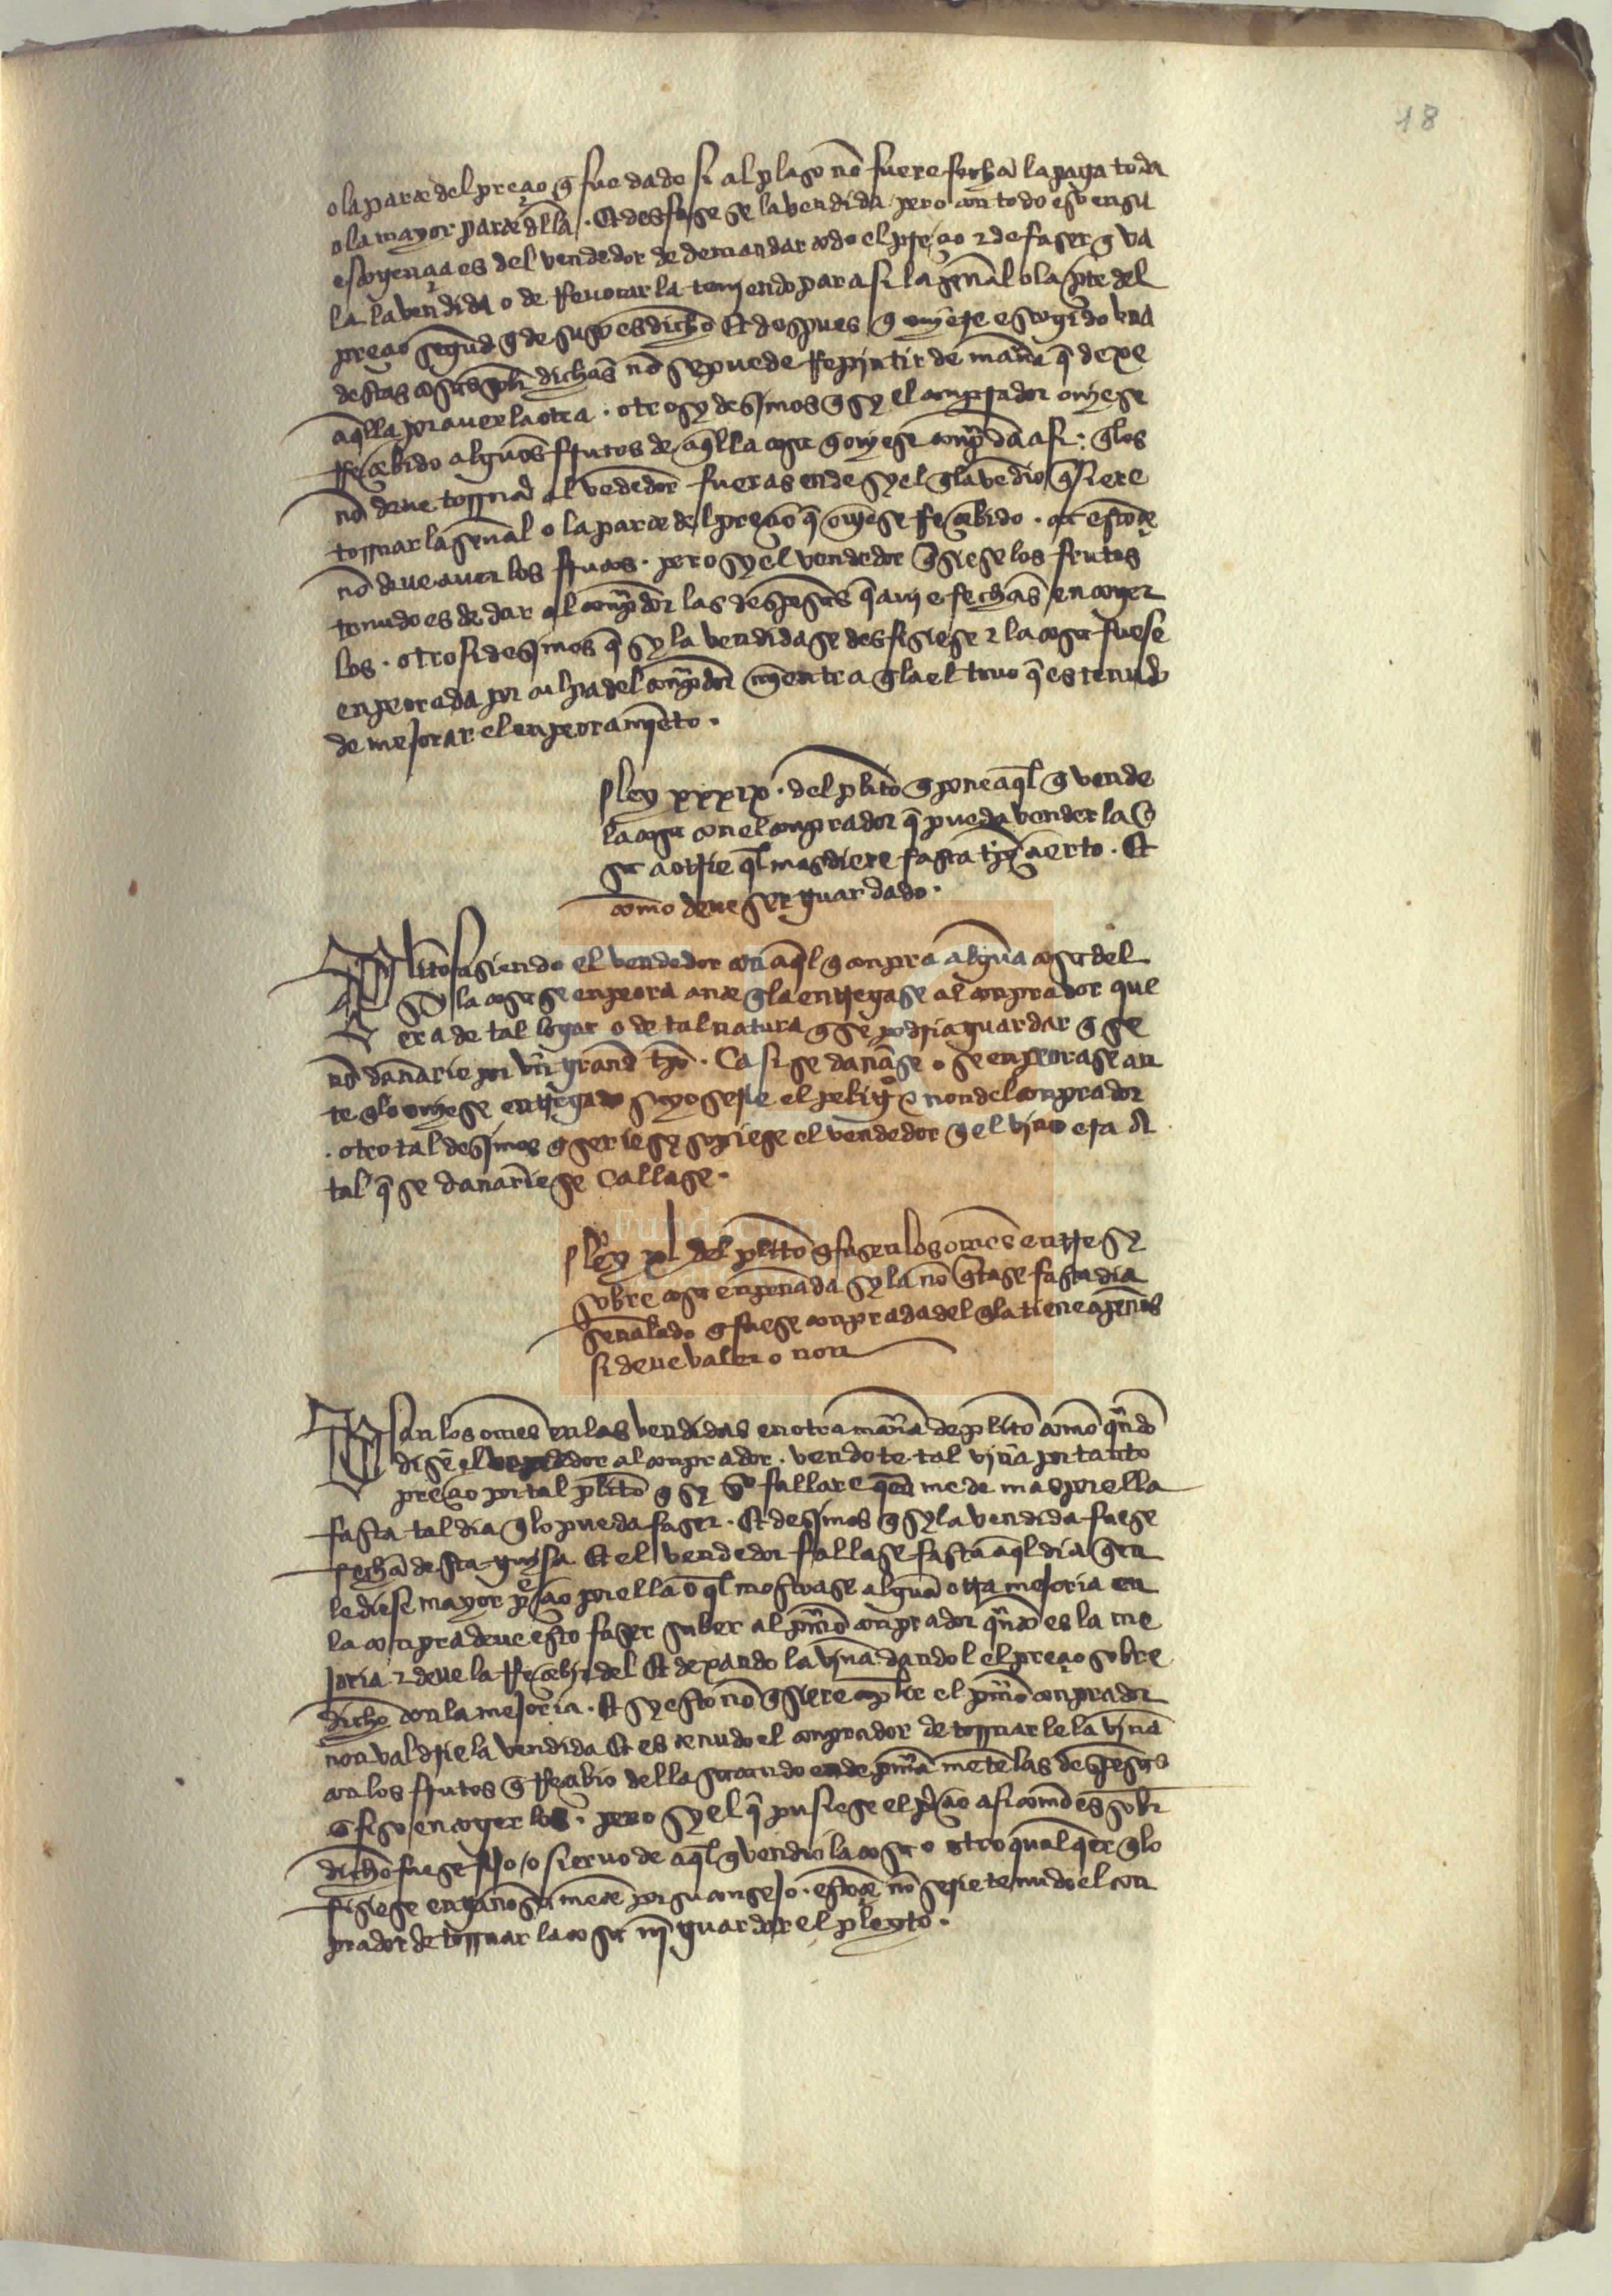 18
o la parte del preçio q̃ fue dado si al plaso nõ fuere fecha la paga toda
o la mayor parte dlla . Et desfase se la vendida pero con todo esto en su
escogençia es del vendedor de demandar todo el preçio τ de faser q̃ va
la la vendida o de rreuocar la teniendo para si la señal o la pte del
preçio segund q̃ de suso es dicho Et despues q̃ ouiere escogido vna
destas cosas sobre dichas nõ se puede rrepintir de mañа q̃ dexe
aq̃lla por auer la otra . otrosy desimos q̃ sy el conprador ouiese
rreçebido algunos frutos de aq̃lla cosa q̃ ouiese conp̃da asi . q̃ los
nõ deue tornar al vẽdedor fueras ende sy el q̃ la vẽdio q̃siere
tornar la señal o la parte del preçio q̃ ouiese rreçebido . ca estõçe
nõ deue auer los frutos . pero sy el vendedor q̃siese los frutos
tenudo es de dar al conp̃dor las despesas q̃ auie fechas en coger
los . otrosi desimos q̃ sy la vendida se desfisiese τ la cosa fuese
enpeorada por culpa del conp̃dor mientra q̃ la el touo q̃ es tenudo
de mejorar el enpeoramiẽto .
ley xxxix . del plito q̃ pone aq̃l q̃ vende
la cosa con el conprador q̃ pueda vender la co
sa a otrie q̃l mas diere fasta tp̃o çierto . Et
como deue ser guardado .
Plito fasiendo el vendedor con aq̃l q̃ conpra alguna cosa del
so la cosa se enpeora ante q̃ la entregase al conprador que
era de tal logar o de tal natura q̃ se podria guardar q̃ se
nõ dañarie por vn grand tp̃o . Ca si se dañase o se enpeorase an
te q̃ lo ouiese entregado suyo serie el peligro τ non del conprador
. otro tal desimos q̃ serie sy sopiese el vendedor q̃ el vino era
tal q̃ se dañarie se callase .
ley xl del plito q̃ fasen los omes entre sy
sobre cosa enpeñada sy la nõ q̃tase fasta dia
señalado q̃ fuese conprada del q̃ la tiene a peños
si deue valer o non
Vsan los omes en las vendidas en otra mañа de plito como q̃ndo
dise el vendedor al conprador . vendo te tal viña por tanto
preçio por tal plito q̃ sy yo fallare quen me de mas por ella
fasta tal dia q̃ lo pueda faser . Et desimos q̃ sy la vendida fuese
fecha desta guisa Et el vendedor fallase fasta aq̃l dia quen
le diese mayor p̃çio por ella o q̃l mostrase alguna otra mejoria en
la conpra deue esto faser saber al p̃mo conprador q̃nto es la me
joria τ deue la rreçebir del Et dexando la viña dandol el preçio sobre
dicho con la mejoria . Et sy esto nõ q̃siere conplir el p̃mo conprador
non valdrie la vendida Et es tenudo el conprador de tornar le la viña
con los frutos q̃ rreçibio della sacando ende p̃mа mẽte las despesas
q̃ fiso en coger los . pero sy el q̃ pusiese el p̃çio asi como es sobre
dicho fuese fijo / o sieruo de aq̃l q̃ vendio la cosa o otro qual quier q̃ lo
fisiese engañosa mente por su consejo . estõçe nõ serie tenudo el con
prador de tornar la cosa nj̃ guardar el pleyto .
Fundación